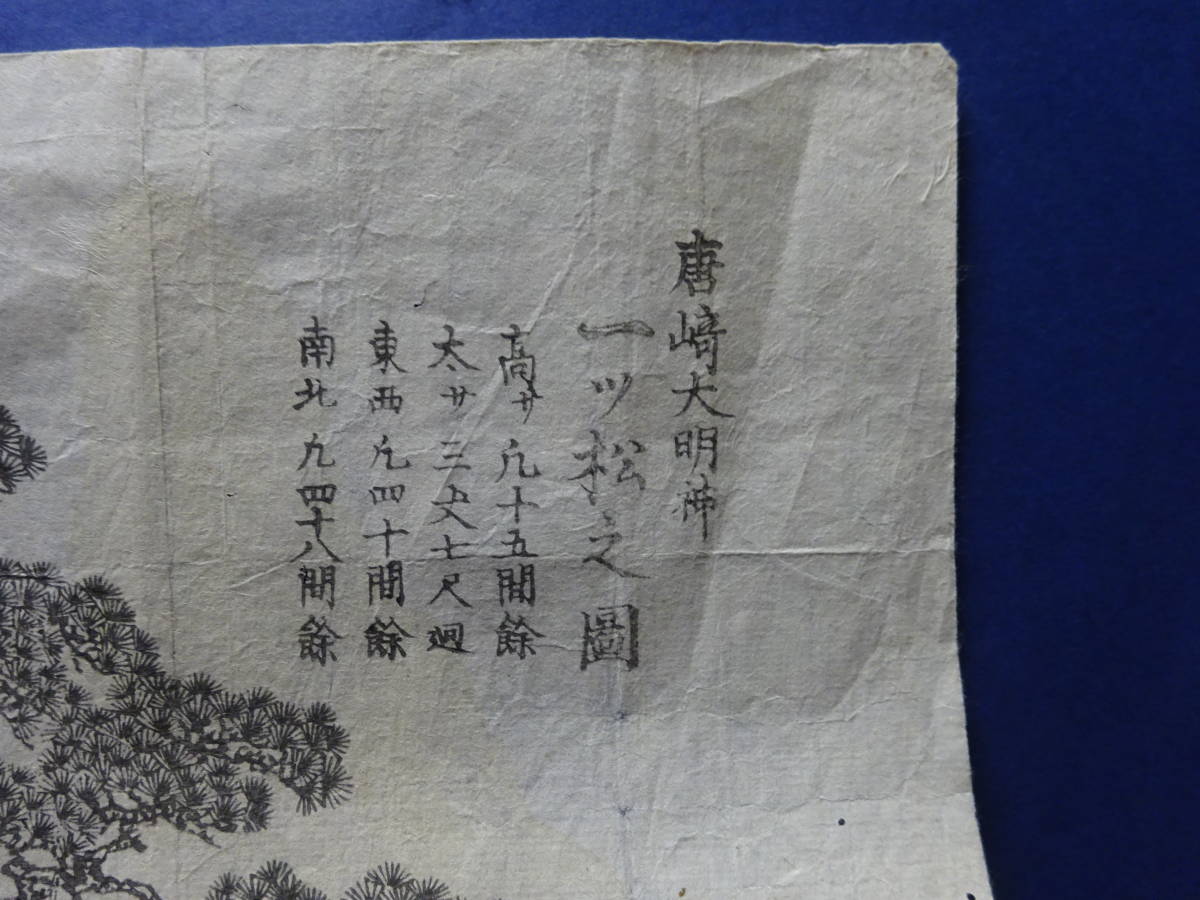 唐﨑大明神
一ツ松之圖
高サ凢十五間餘
太サ三丈七尺廻
東西凢四十間餘
南北凢四十八間餘